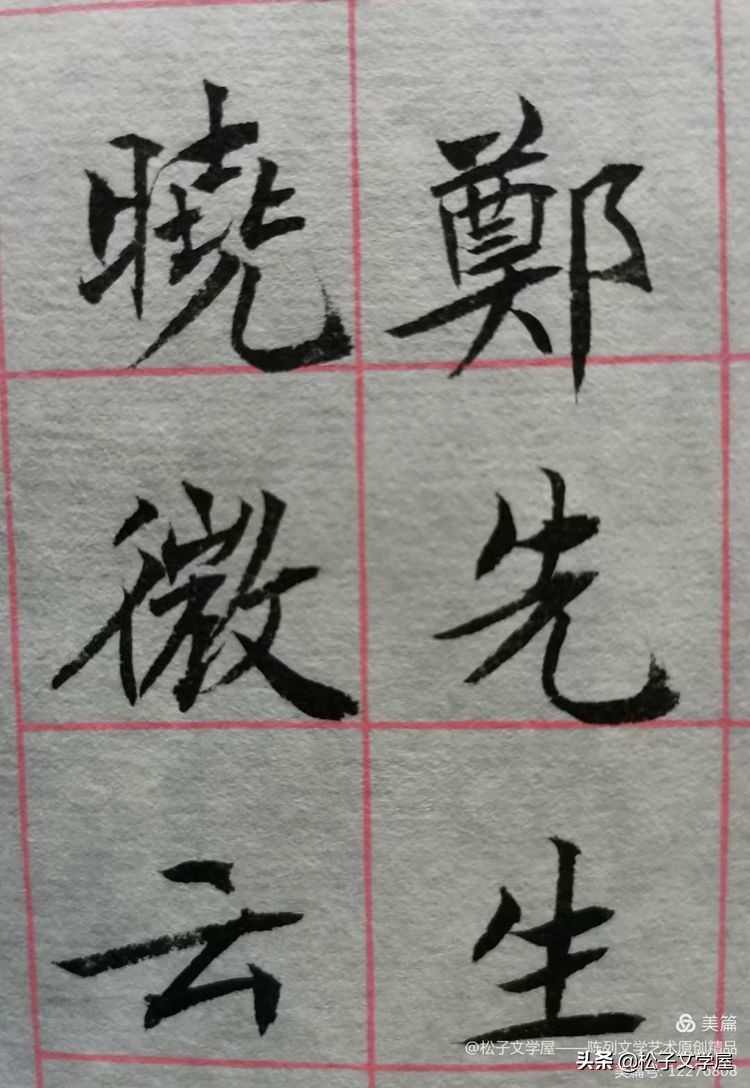 鄭先生
曉微云
美篇
@松子文学屋——陈列文学艺术原创精品
头条 @松子文学屋
美篇号:12276808